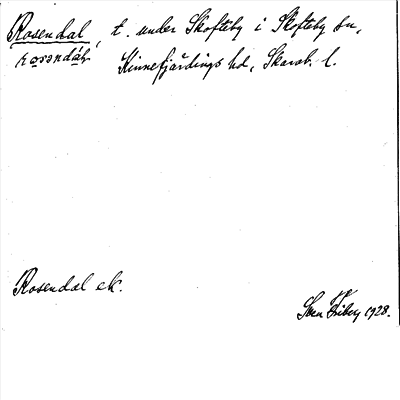 Rosendal, t. under Skofteby i Skofteby sn,
rosəndáɫ Kinnefjärdings hd, Skarab. l.
Rosendal ek.
Sven Friberg 1928.